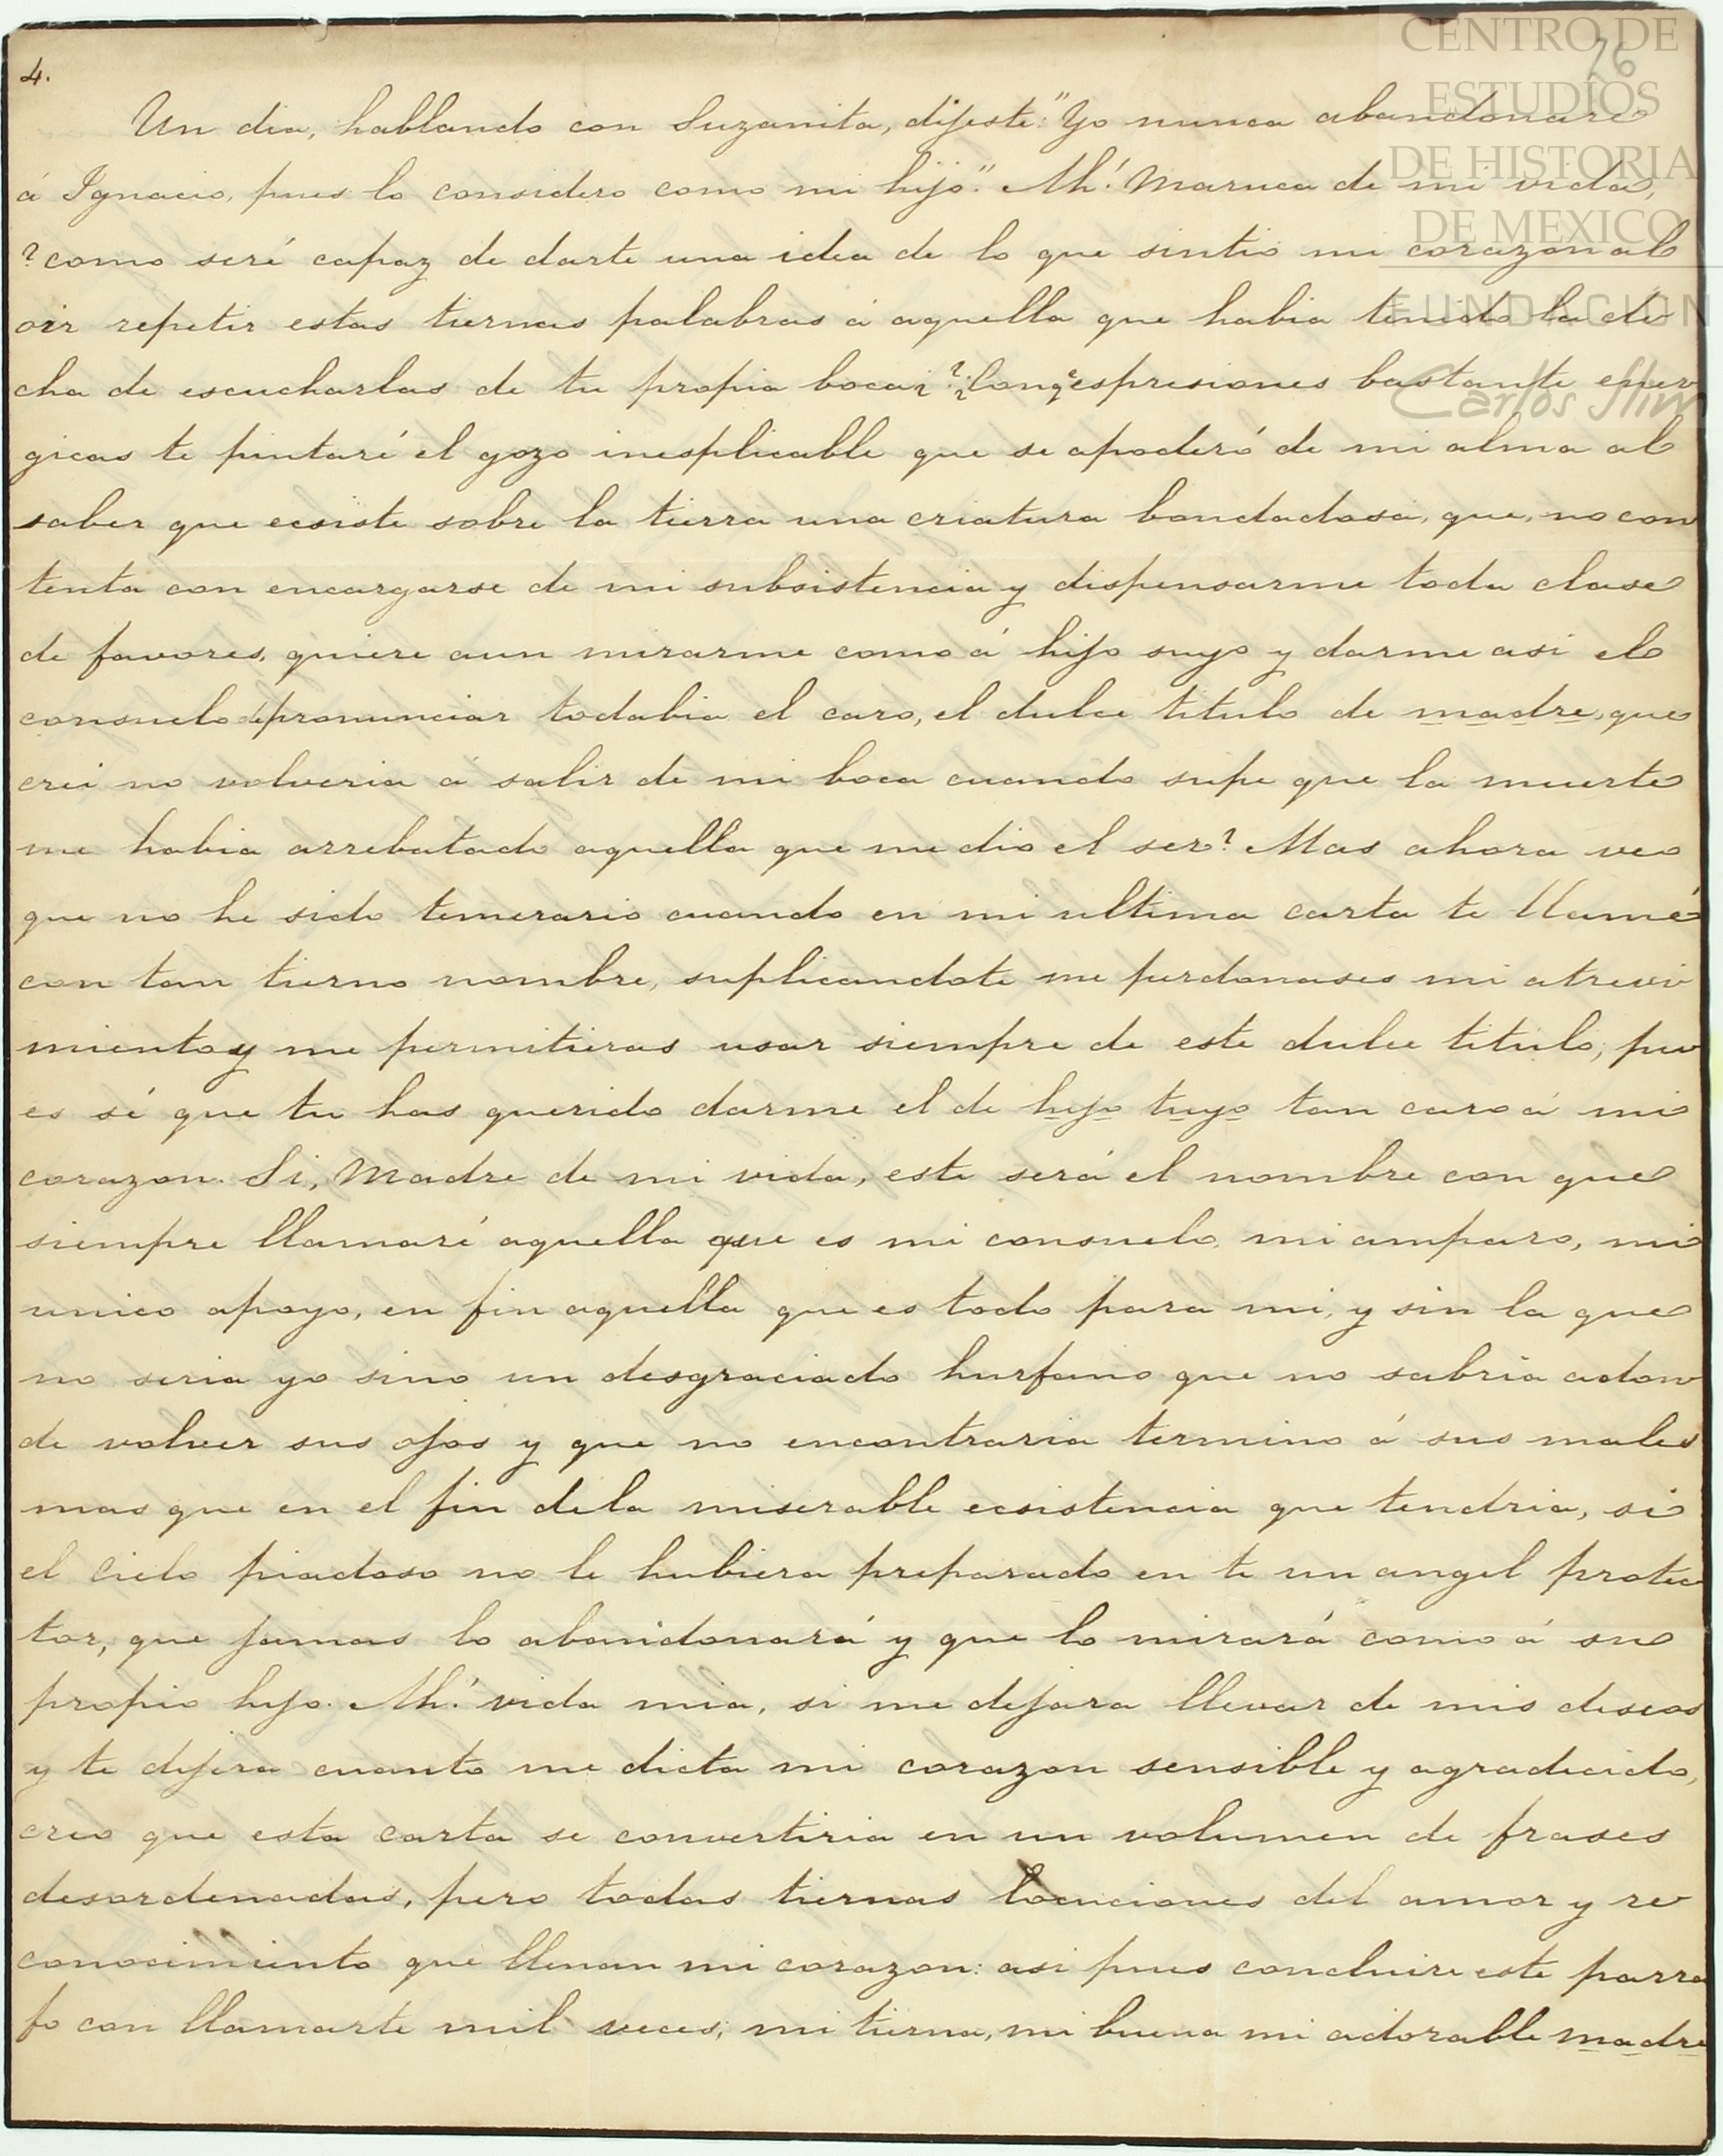 CENTRO DE
ESTUDIOS
DE HISTORIA
DE MEXICO
FUNDACIÓN
Carlos Slim
26
4.
Un dia, hablando con Suzanita, dijeste: "Yo nunca abandonaré
á Ignacio, pues lo considero como mi hijo." Ah! Maruca de mi vida,
?como seré capaz de darte una idea de lo que sintio mi corazon al
oir repetir estas tiernas palabras á aquella que habia tenido la di-
cha de escucharlas de tu propia boca? ¿Con qe espresiones bastante ener
gicas te pintaré el gozo inesplicable que se apoderó de mi alma al
saber que ecsiste sobre la tierra una criatura bondadosa, que, no con
tenta con encargarse de mi subsistencia y dispensarme toda clase
de favores, quiere aun mirarme como á hijo suyo y darme asi el
consuelo de pronunciar todabia el caro, el dulce titulo de madre, que
crei no volveria á salir de mi boca cuando supe que la muerte
me habia arrebatado aquella que me dio el ser? Mas ahora veo
que no he sido temerario cuando en mi ultima carta te llamé
con tan tierno nombre, suplicandote me perdonases mi atrevi
miento y me permitieras usar siempre de este dulce titulo, pu
es sé que tu has querido darme el de hijo tuyo tan caro á mi
corazon. Si, Madre de mi vida, este será el nombre con que
siempre llamaré aquella que es mi consuelo, mi amparo, mi
unico apoyo, en fin aquella que es todo para mi, y sin la que
no seria yo sino un desgraciado hurfano que no sabria adon
de volver sus ojos y que no encontraria termino á sus males
mas que en el fin dela miserable ecsistencia que tendria, si
el cielo piadoso no le hubiera preparado en ti un angel protec
tor, que jamas lo abandonará y que lo mirará como á su
propio hijo. Ah! vida mia, si me dejara llevar de mis deseos
y te dijera cuanto me dicta mi corazon sensible y agradecido,
creo que esta carta se convertiria en un volumen de frases
desordenadas, pero todas tiernas locuciones del amor y re
conocimiento que llenan mi corazon: asi pues concluire este parra
fo con llamarte mil veces; mi tierna, mi buena mi adorable madre